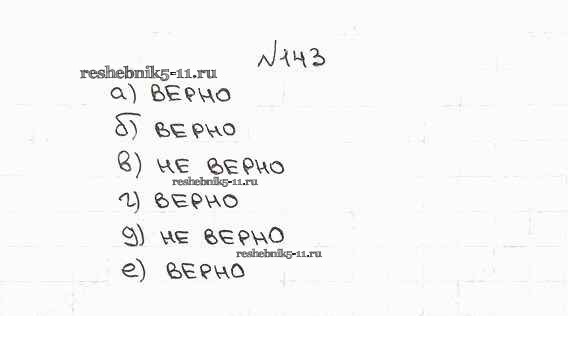 №143
reshebnik5-11.ru
а) ВЕРНО
б) ВЕРНО
в) НЕ ВЕРНО
reshebnik5-11.ru
г) ВЕРНО
д) НЕ ВЕРНО
reshebnik5-11.ru
е) ВЕРНО